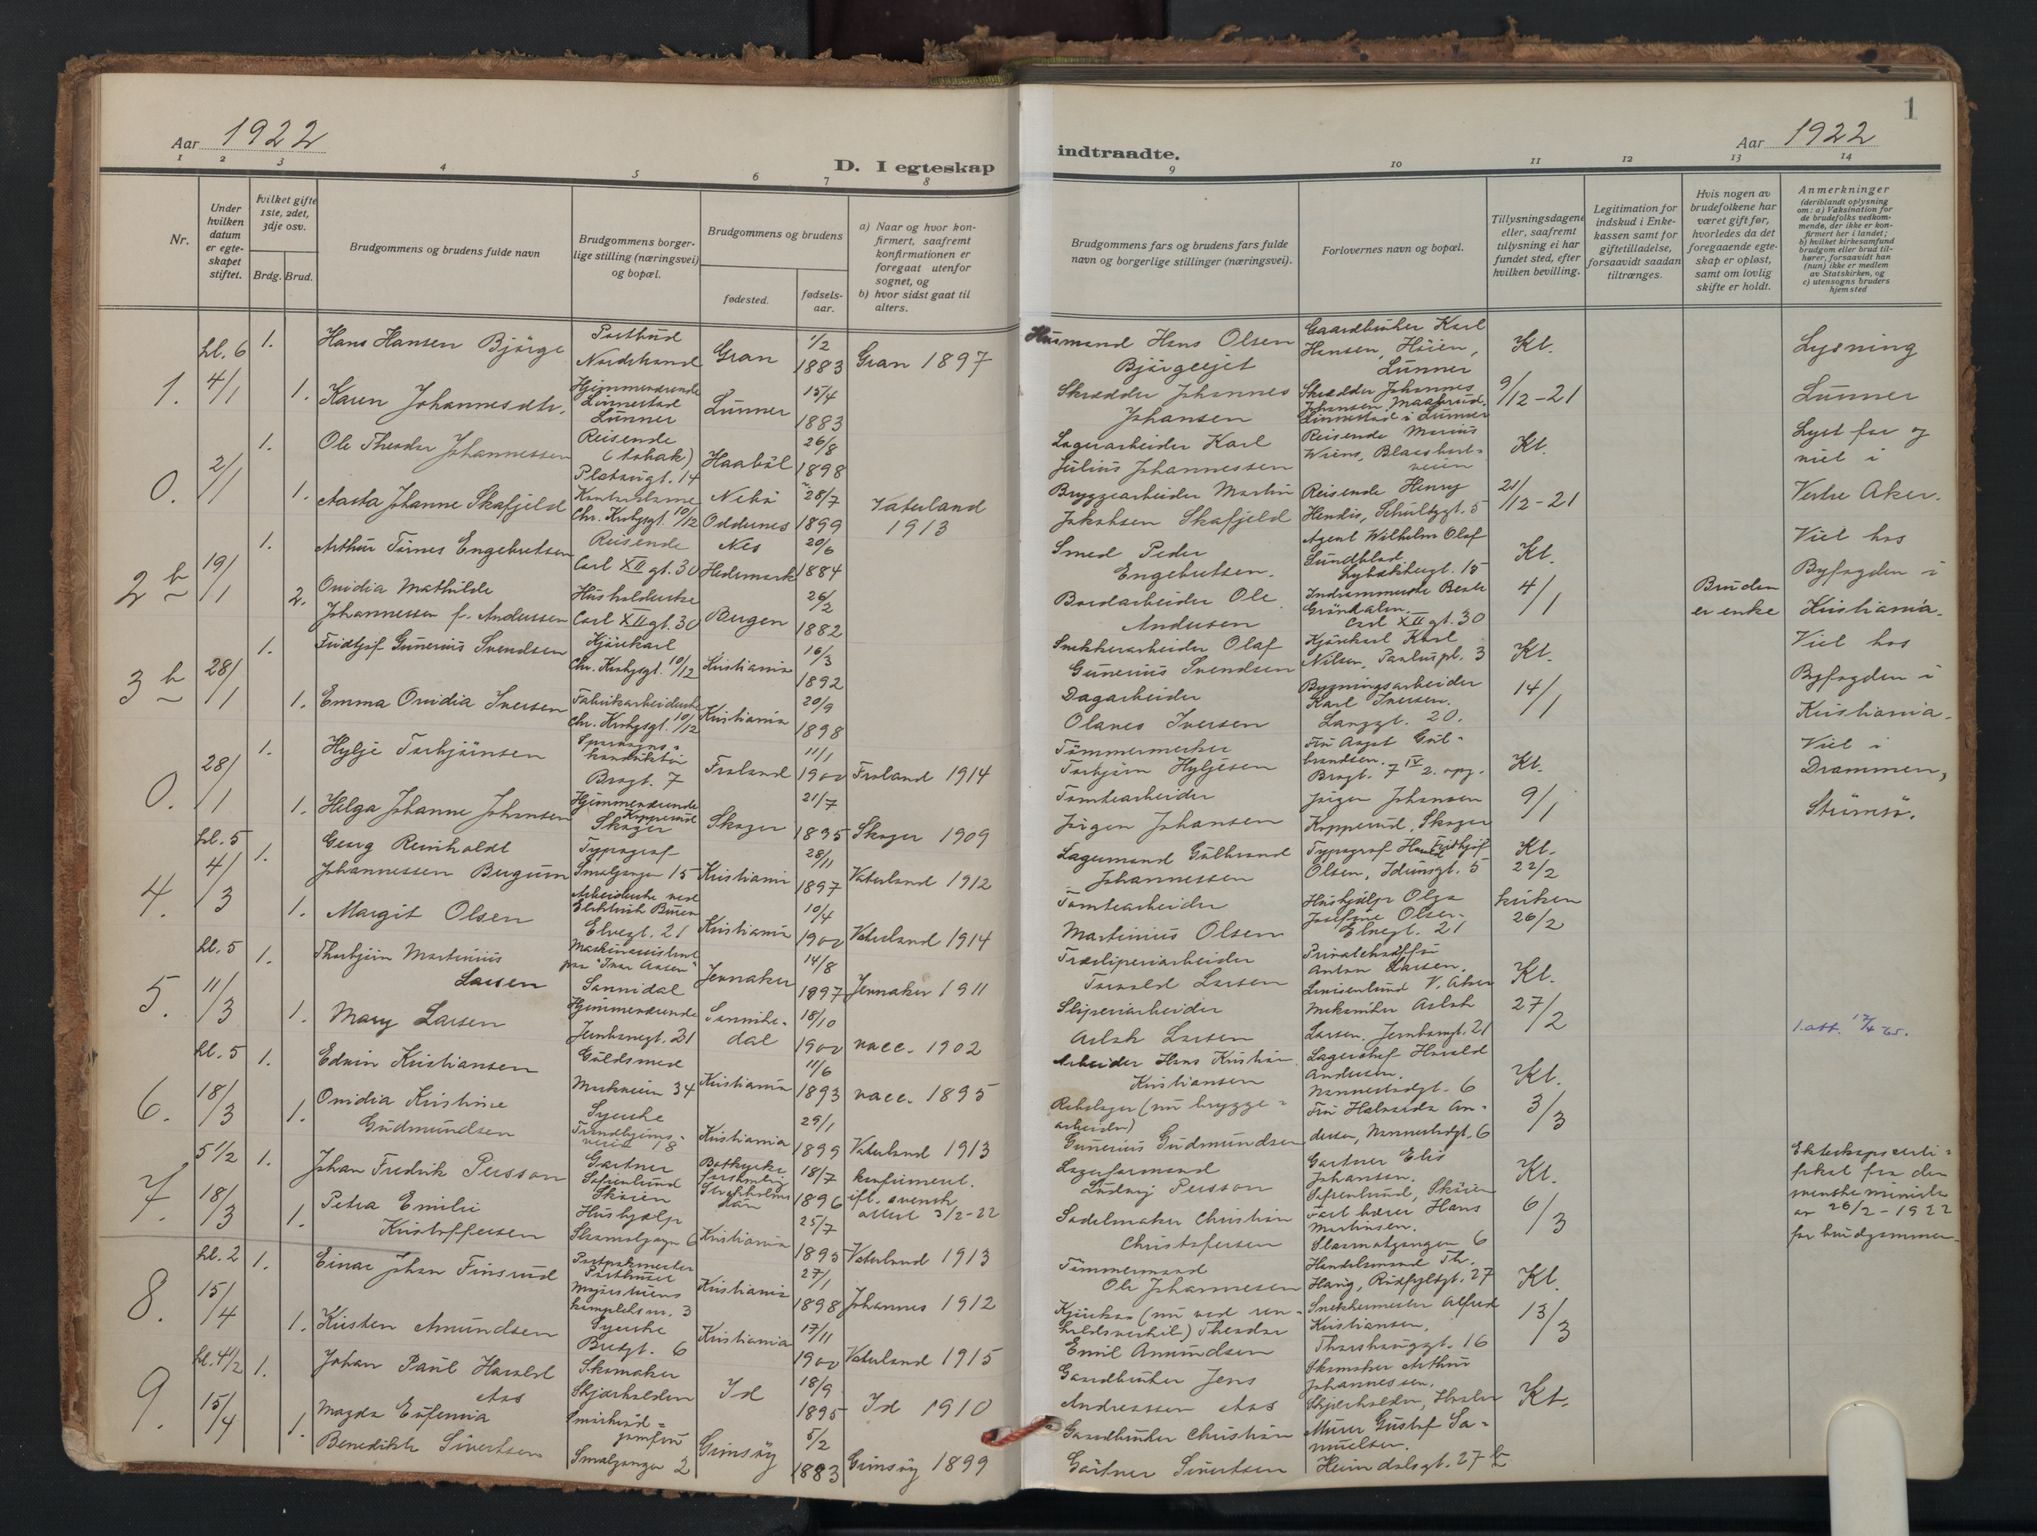 Aar 1922
D. I egteskap
indtraadte.
Aar 1922
1
1 2 3 4 5 6 7 8 9 10 11 12 13 14
Nr.
Under hvilken datum er egteskapet stiftet.
Hvilket gifte 1ste, 2det, 3dje osv.
Brdg. Brud.
Brudgommens og brudens fulde navn
Brudgommens borgerlige stilling (næringsvei) og bopæl.
Brudgommens og brudens
fødested.
fødselsaar.
a) Naar og hvor konfirmert, saafremt konfirmationen er foregaat utenfor sognet, og
b) hvor sidst gaat til alters.
Brudgommens fars og brudens fars fulde navn og borgerlige stillinger (næringsvei).
Forlovernes navn og bopæl.
Tillysningsdagene eller, saafremt tillysning ei har fundet sted, efter hvilken bevilling.
Legitimation for indskud i Enkekassen samt for giftetilladelse, forsaavidt saadan tiltrænges.
Hvis nogen av brudefolkene har været gift før, hvorledes da det foregaaende egteskap er opløst, samt om lovlig skifte er holdt.
Anmerkninger
(deriblandt oplysning om: a) Vaksination for de brudefolks vedkommende, der ikke er konfirmert her i landet; b) hvilket kirkesamfund brudgom eller brud tilhører, forsaavidt han (hun) ikke er medlem av Statskirken, og c) utensogns bruders hjemsted
1. kl. 6 4/1
1. Hans Hansen Bjørge Postbud Nordstrand Gran 1/2 1883 Gran 1897 Husmand Hans Olsen Bjørgeeiet Gaardbruker Karl Hansen, Høien, Lunner Kl. Lysning
1. Karen Johannesdtr. Hjemmeværende Linnestad Lunner Lunner 15/4 1883 Skrædder Johannes Johansen Skrædder Johannes Johansen Linnestad i Lunner 9/12-21 Lunner
0. 2/1
1. Ole Theodor Johannessen Reisende (tobak) 14 Haabøl 26/8 1898 Lagerarbeider Karl Julius Johannessen Reisende Marius Kl. Lyst for og viet i
1. Aasta Johanne Skafjeld Chr. Krohgsgt. 10/12 Oddernes 28/7 1899 Vaterland 1913 Bryggearbeider Martin Jakobsen Skafjeld Reisende Henry 5 21/12-21 Vestre Aker.
2 b 19/1
1. Arthur Tørnes Engebretsen Reisende Carl XII gt. 30 Nes Hedemark 20/6 1884 Smed Peder Engebretsen. Agent Wilhelm Olaf Sundblad 15 Kl. Viet hos Byfogden i
2. Ovidia Mathilde Johannessen f. Andersen Husholderske Carl XII gt. 30 Bergen 26/2 1882 Bordarbeider Ole Andersen Grøndalen. Carl XII gt. 30 4/1 Bruden er enke Kristiania.
3 b 28/1
1. Fridtjof Gunerius Svendsen Kjørekarl Chr. Krohgsgt. 10/12 Kristiania 16/3 1892 Snekkerarbeider Olaf Gunerius Svendsen Kjørekarl Karl Nilsen, Pauluspl. 3 Kl. Viet hos Byfogden i
1. Emma Ovidia Iversen Fabrikarbeiderske Chr. Krohgsgt. 10/12 Kristiania 20/9 1898 Dagarbeider Olaves Iversen Bygningsarbeider Karl Iversen. Langgt. 20. 14/1 Kristiania.
0. 28/1
1. Hylje Torbjörnsen Sporvognskonduktør Brogt. 7 Froland 11/1 1900 Froland 1914 Tömmermerker Torbjörn Hyljesen Fru Aagot Gulbrandsen. Brogt. 7 IV 2. opg. Kl. Viet i Drammen,
1. Helga Johanne Johansen Hjemmeværende Kopperud Skoger Skoger 21/7 1895 Skoger 1909 Tomtearbeider Jörgen Johansen Jörgen Johansen Kopperud, Skoger 9/1 Strömsö.
4. kl. 5 4/3
1. Georg Reinholdt Johannessen Bergum Typograf Smalgangen 15 Kristiania 28/11 1897 Vaterland 1912 Lagermand Gulbrand Johannessen Typograf Harald Fridtjof Olsen, Idunsgt. 5 Kl. 22/2
1. Margit Olsen Arbeiderske ved Elektrisk Bureau Elvegt. 21 Kristiania 10/4 1900 Vaterland 1914 Tomtearbeider Martinius Olsen Hushjælp Olga Josefine Olsen Elvegt. 21 kirken 26/2
5. kl. 5 11/3
1. Thorbjörn Martinius Larsen Maskinassistent paa "Ivar Aasen" Sannidal Jevnaker 14/8 1897 Jevnaker 1911 Træsliperiarbeider Torvald Larsen Anton Larsen. V. Aker Kl.
1. Mary Larsen Hjemmeværende Jernbanegt. 21 Sannikedal 18/10 1900 vacc. 1902 Sliperiarbeider Aslak Larsen Mekaniker Aslak Larsen. Jernbanegt. 21 27/2 1. att. 17/4 65.
6. kl. 5 18/3
1. Edvin Kristiansen Guldsmed Markveien 34 Kristiania 11/6 1893 vacc. 1895 Arbeider Hans Kristian Kristiansen Lagerchef Harald Andersen. Mannerhedgt. 6 Kl.
1. Ovidia Kristine Gudmundsen Syerske Trondhjemsveien 18 Kristiania 29/1 1899 Vaterland 1913 (nu bryggearbeider) Gunerius Gudmundsen Fru Andersen, 6 3/3
7. 5 1/2 18/3
1. Johan Fredrik Persson Gartner Sofienlund Skøien Botkyrka Stockholms län 18/7 1896 konfirmert ifl. svensk attest 3/2-22 Lagerformand Ludvig Persson Gartner Elis Johansen. Sofienlund, Skøien Kl. Ekteskapscertifikat fra den svenske minister av 26/2-1922 for brudgommen.
1. Petra Emilie Kristoffersen Hushjælp 6 Kristiania 25/7 1895 Vaterland 1913 Sadelmaker Christian Christofersen Hans Martinsen. 6 6/3
8. kl. 2 15/4
1. Einar Johan Finsrud Posthuset Majorstuens 3 Kristiania 27/1 1898 Johannes 1912 Tömmermand Ole Johannesen Handelsmand Th. Haug, Rudfyldgt. 27 Kl.
1. Kirsten Amundsen Syerske Bredgt. 6 Kristiania 17/11 1900 Vaterland 1915 (nu ved renholdsverket) Theodor Emil Amundsen Snekkermester Alfred Kristiansen, Thorshauggt. 16 13/3
9. kl. 4 1/2 15/4
1. Johan Paul Harald Aas Skomaker Skjærhalden Id 18/9 1895 Id 1910 Gaardbruker Jens Andreassen Aas Skomaker Arthur Johannessen. Skjærhalden, Hvaler Kl.
1. Magda Eufemia Benedikte Sivertsen Smørbrødjomfru Smalgangen 2 Grimsøy 5/2 1883 Grimsøy 1899 Gaardbruker Christian Gartner Sivertsen Murer Gustaf Samuelsen. Heimdalsgt. 27 b